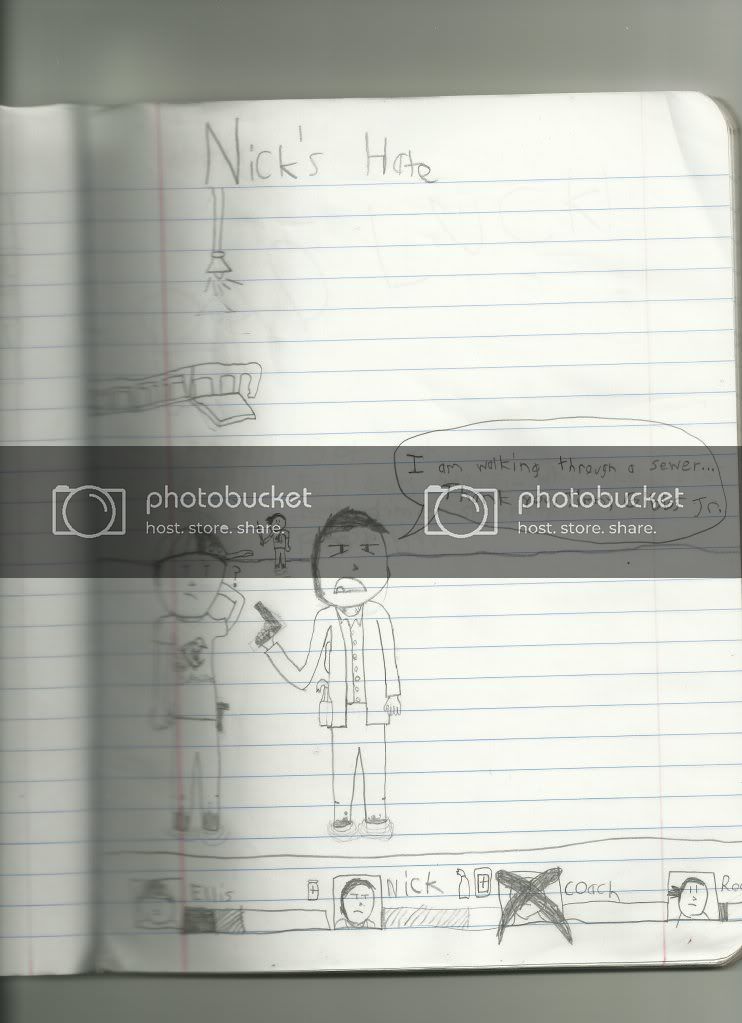 Nick's Hate
I am walking through a sewer...
Jr.
photobucket
host. store. share.
photobucket
host. store. share.
?
Ellis
Nick
COACH
Ro